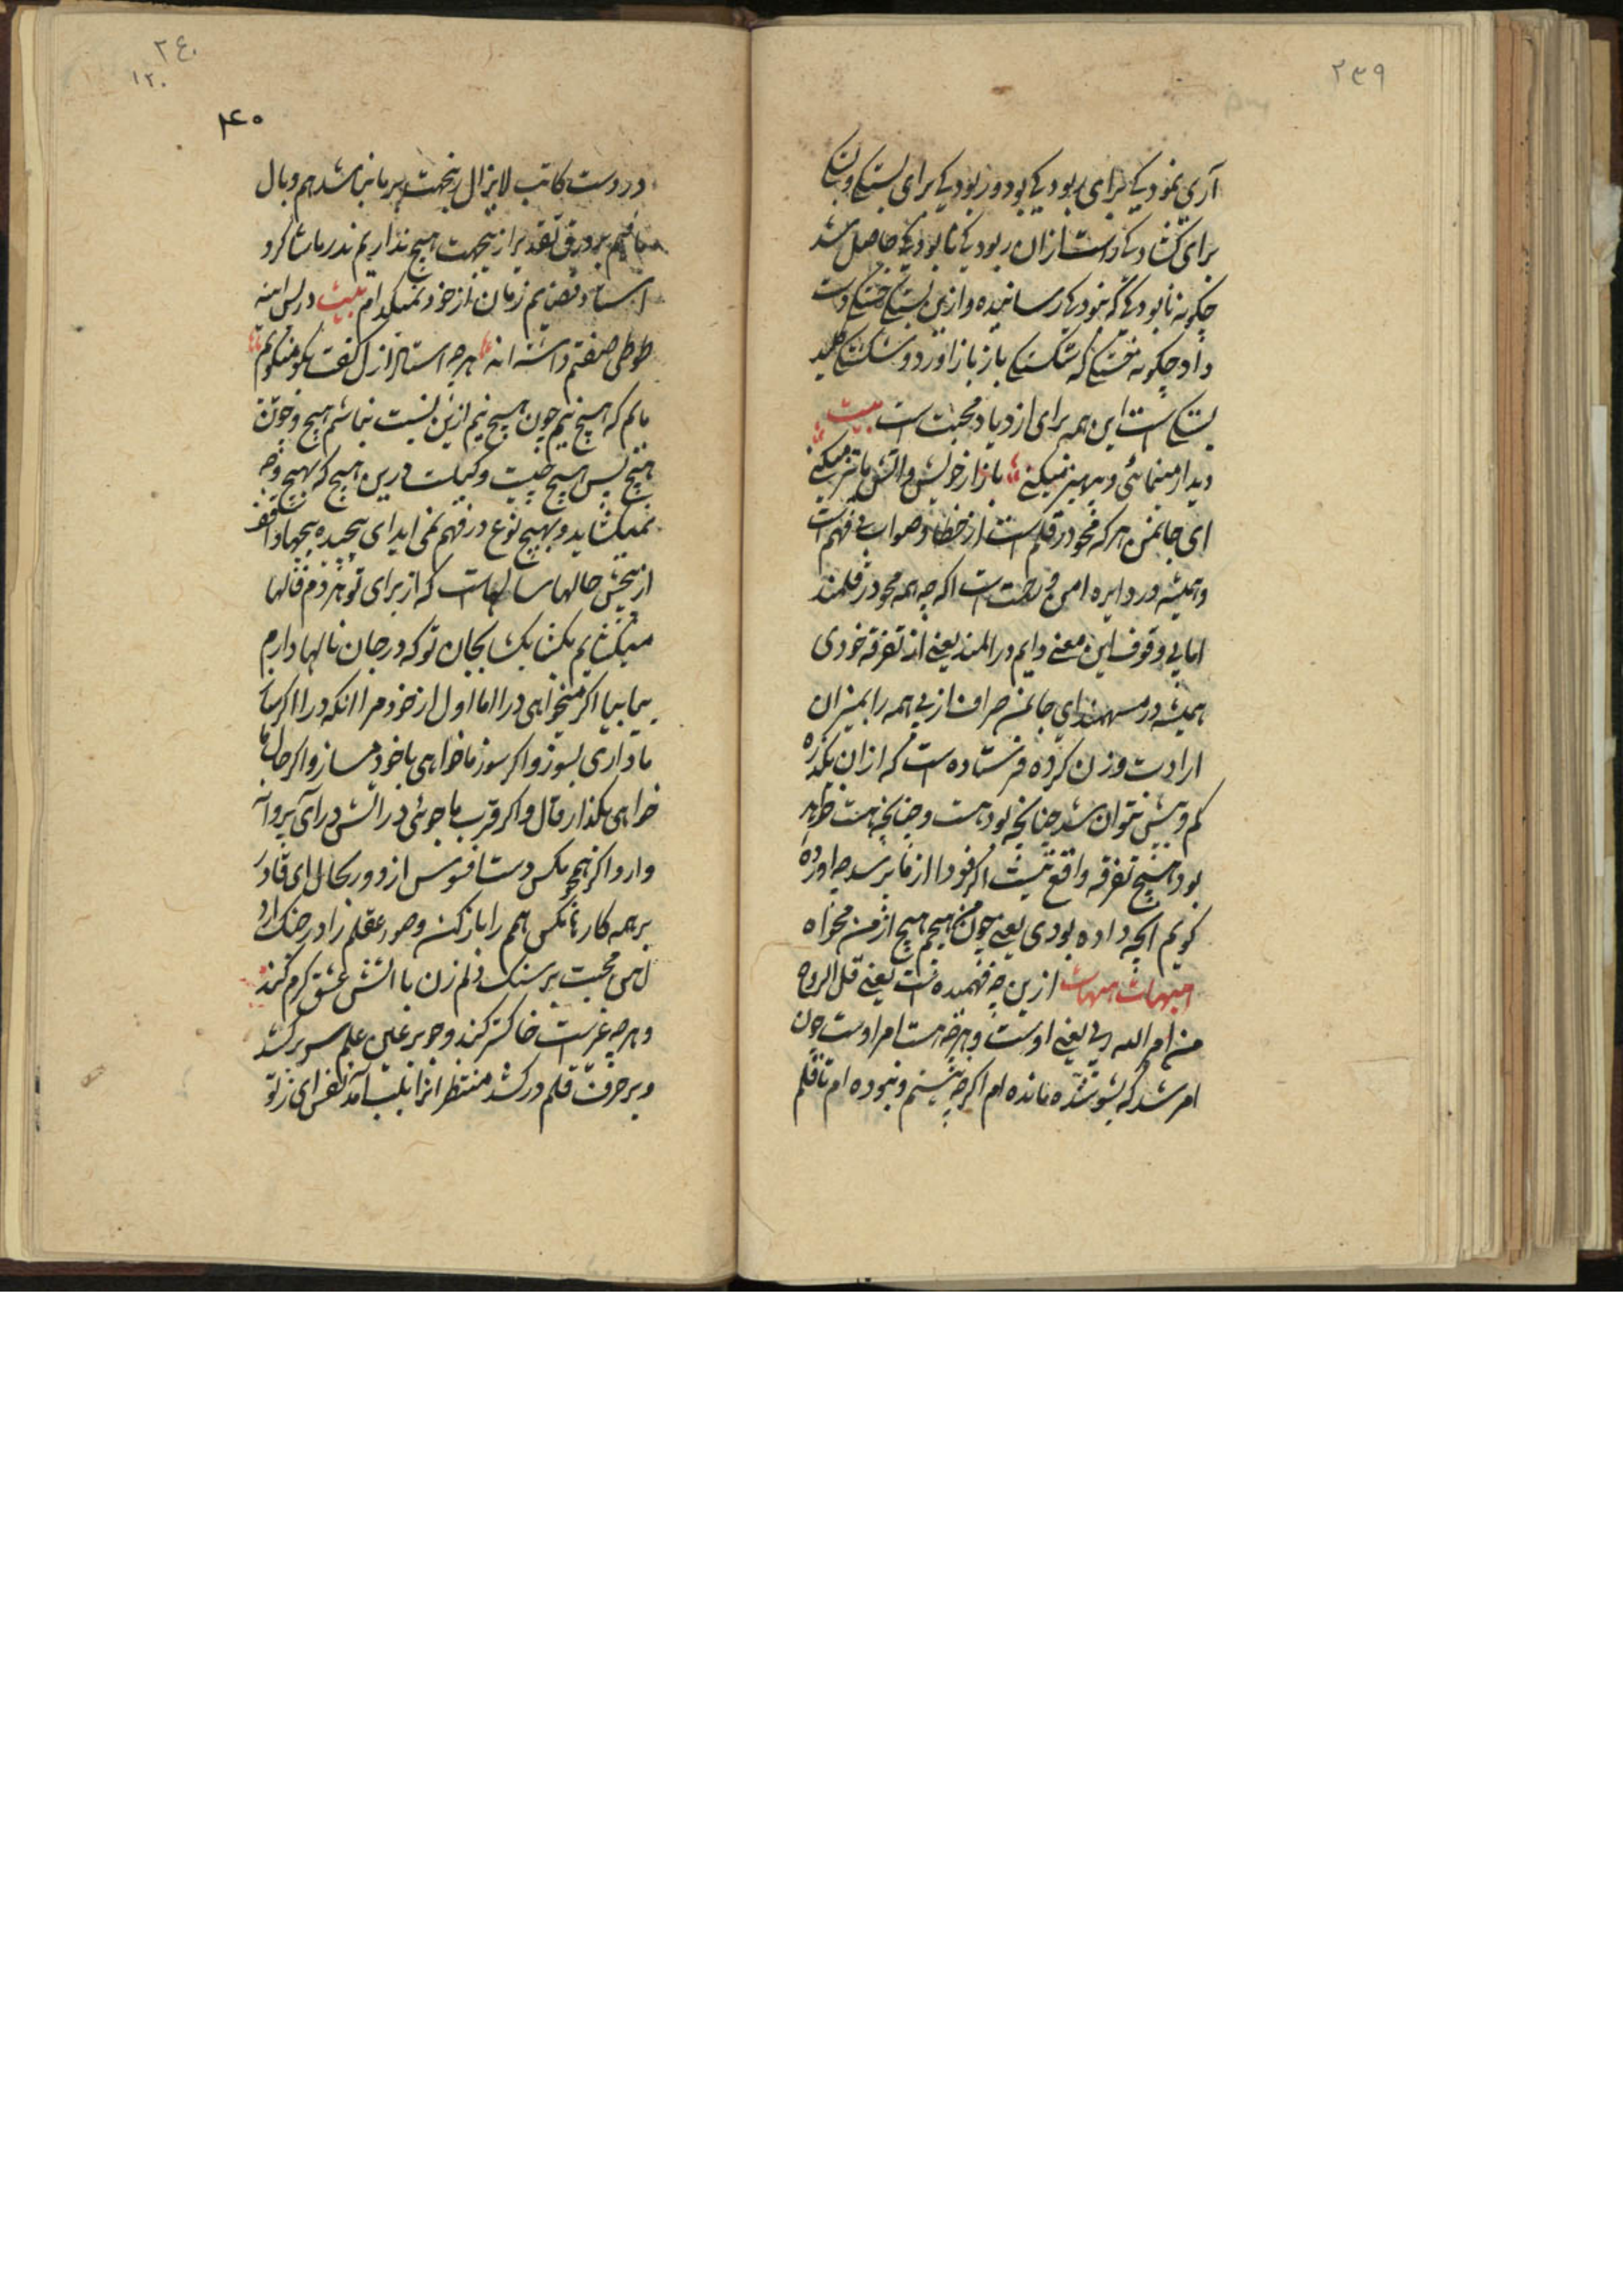 ۲۳۹
آری نمودیکی برای ربودیکی بود و ربودیکی برای بستگی و بستگی
برای کشادیکی داشت ازان ربودیکی نابودیکی حاصل شد
چگونه نابودیکی که بنودیکی رسانیده و ازین بستگی خستگی دست
داد چگونه خستگی که شکستگی باز باز آورد و شکستگی کلید
بستگی است این همه برای ازدیاد محبت است بیت
دیدار مینمائی و پرهیز میکنی بازار خویش و آتش ما تیز میکنی
ای جانمن هر که محو در قلم است از خطا و صواب بی فهم است
و همیشه در دایره امن و راحت است اگرچه همه محو در قلمند
اما بی وقوف این معنی دایم در المند یعنی از تفرقه خودی
همیشه در سهمند ای جانمن صراف ازلی همه را بمیزان
ارادت وزن کرده فرستاده است که ازان بکذره
کم و بیش نتوان شد چنانچه بود هست و چنانچه هست خواهد
بود هیچ تفرقه واقع نیست اگر فردا از ما پرسد چه آورده
گویم آنچه داده بودی یعنی چون من هیچم هیچ از من مخواه
هیهات هیهات ازین چه فهمیده است یعنی قل الروح
من امر الله ربی یعنی اوست و هرچه هست امر اوست چون
امر شد که بشو شده مانده ام اگرچه نیستم و نبوده ام تا قلم
۲٤۰
۱۲۰
۲۴۰
در دست کاتب لایزال رنجهت بر ما نباشد هم وبال
ما نیم بر ورق تقدیر ازینجهت هیچ نداریم ندر ما شاگرد
استاد قضایم زمان از خود نمیگویم بیت در پس آینه
طوطی صفتم داشته اند هرچه استاد ازل گفت بگو میگویم
مایم که هیچ نیم چون هیچ نیم ازین نسبت نباشم هیچ و چون
هیچ پس هیچ چیست و کیست درین هیچ که بهیچ وجه
نمیکشاید و بهیچ نوع در فهم نمی آید ای پیچیده پیچها واقف
از پیچش حالها سالهاست که از برای تو هر دم فالها
میکشایم بکشا یک بجان تو که در جان نالها دارم
بیا بیا اگر میخواهی درآ اما اول از خود برآ انگه درآ اگر ساز
ما داری بسوز و اگر سوز ما خواهی با خود مساز و اگر حال ما
خواهی بگذار قال و اگر قرب ما جوئی در آتش درآی پروانه
وار و اگر نه همچو مگس دست افسوس از دور بحال ای قادر
بر همه کارها مگس همم را باز کن و صور عقلم را در جنگ آرد
آهن محبت بر سنگ دلم زن با آتش عشق گرم کند
و هرچه غیر است خاکستر کند و چو بر غین علم سر برکشد
و بر حرفت قلم درکشد منتظر انرا بلب آمد نفس ای ز تو